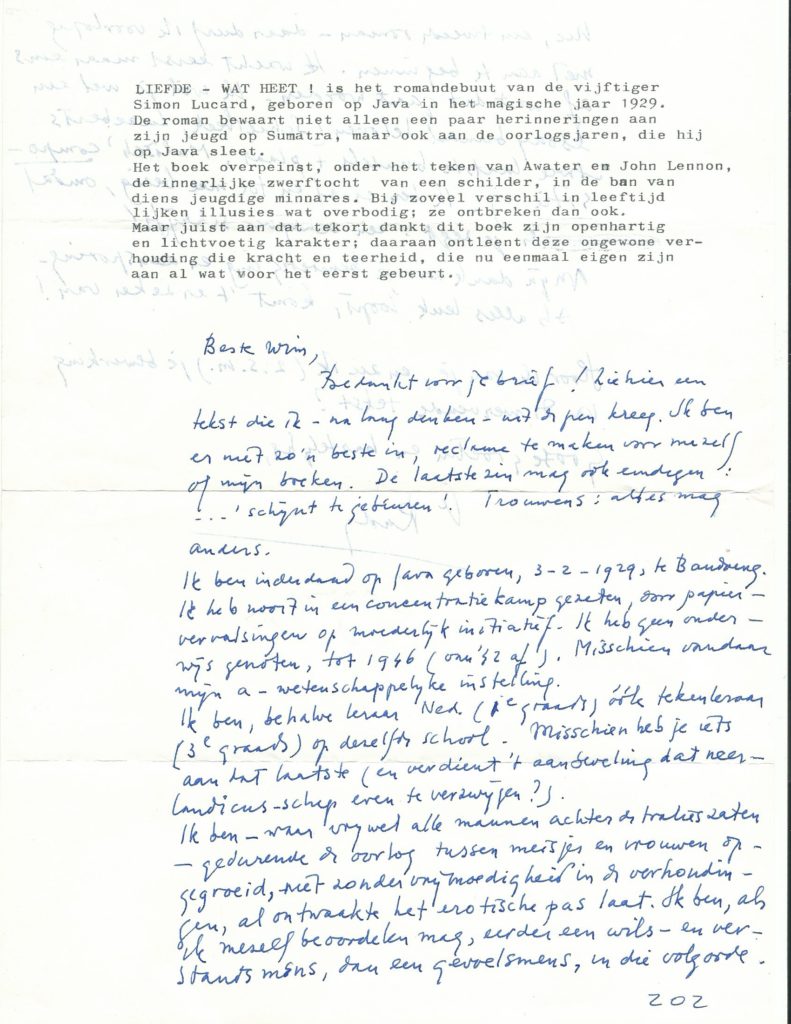 LIEFDE - WAT HEET ! is het romandebuut van de vijftiger
Simon Lucard, geboren op Java in het magische jaar 1929.
De roman bewaart niet alleen een paar herinneringen aan
zijn jeugd op Sumatra, maar ook aan de oorlogsjaren, die hij
op Java sleet.
Het boek overpeinst, onder het teken van Awater en John Lennon,
de innerlijke zwerftocht van een schilder, in de ban van
diens jeugdige minnares. Bij zoveel verschil in leeftijd
lijken illusies wat overbodig; ze ontbreken dan ook.
Maar juist aan dat tekort dankt dit boek zijn openhartig
en lichtvoetig karakter; daaraan ontleent deze ongewone ver-
houding die kracht en teerheid, die nu eenmaal eigen zijn
aan al wat voor het eerst gebeurt.
Beste Wim,
Bedankt voor je brief! Ziehier een
tekst die ik - na lang denken - uit de pen kreeg. Ik ben
er niet zo'n beste in, reclame te maken voor mezelf
of mijn boeken. De laatste zin mag ook eindigen:
'... schijnt te gebeuren'. Trouwens: alles mag
anders.
Ik ben inderdaad op Java geboren, 3-2-1929, te Bandoeng.
Ik heb nooit in een concentratiekamp gezeten, door papier-
vervalsingen op moederlijk initiatief. Ik heb geen onder-
wijs genoten, tot 1946 (van '42 af). Misschien vandaar
mijn a-wetenschappelijke instelling.
Ik ben, behalve leraar Ned. (1e graads) óók tekenleraar
(3e graads) op dezelfde school. Misschien heb je iets
aan dat laatste (en verdient 't aanbeveling dat neer-
landicus-schap even te verzwijgen?).
Ik ben - waar vrijwel alle mannen achter de tralies zaten
- gedurende de oorlog tussen meisjes en vrouwen op-
gegroeid, niet zonder vrijmoedigheid in de verhoudin-
gen, al ontwaakte het erotische pas laat. Ik ben, als
ik mezelf beoordelen mag, eerder een wils- en ver-
standsmens, dan een gevoelsmens, in die volgorde.
202